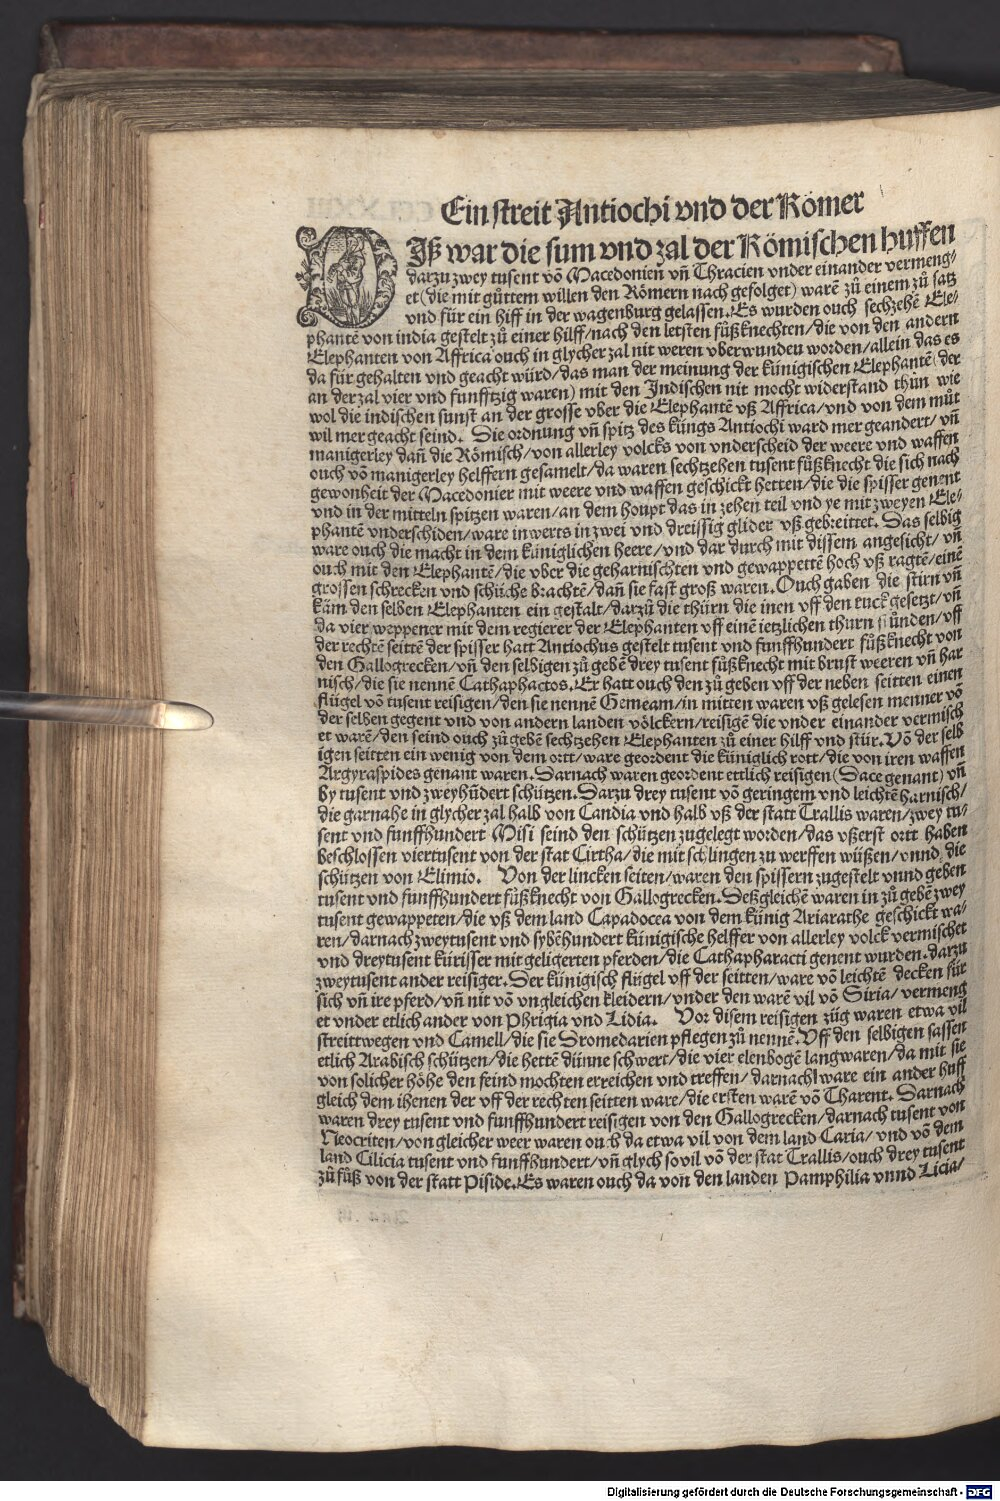 Ein streit Antiochi vnd der Römer
DIß war die sum vnd zal der Römischen huffen
darzu zwey tusent vō Macedonien vñ Thracien vnder einander vermeng⸗
et (die mit gůttem willen den Römern nach gefolget) warē zů einem zů satz
vnd für ein hiff in der wagenburg gelassen. Es wurden ouch sechzehē Ele⸗
phantē von india gestelt zů einer hilff/nach den letsten fůßknechten/die von den andern
Elephanten von Affrica ouch in glycher zal nit weren vberwunden worden/allein das es
da für gehalten vnd geacht würd/das man der meinung der künigischen Elephantē (der
an der zal vier vnd funfftzig waren) mit den Indischen nit mocht widerstand thůn wie
wol die indischen sunst an der grosse vber die Elephantē vß Affrica/vnd von dem můt
wil mer geacht seind. Die ordnung vñ spitz des küngs Antiochi ward mer geandert/vñ
manigerley dañ die Römisch/von allerley volcks von vnderscheid der weere vnd waffen
ouch vō manigerley helffern gesamelt/da waren sechtzehen tusent fůßknecht die sich nach
gewonheit der Macedonier mit weere vnd waffen geschickt hetten/die die spisser genent
vnd in der mitteln spitzen waren/an dem houpt das in zehen teil vnd ye mit zweyen Ele⸗
phantē vnderschiden/ware inwerts in zwei vnd dreissig glider vß gebreittet. Das selbig
ware ouch die macht in dem küniglichen heere/vnd dar durch mit dissem angesicht/vñ
ouch mit den Elephantē/die vber die geharnischten vnd gewappettē hoch vß ragtē/einē
grossen schrecken vnd schüche brachtē/dañ sie fast groß waren. Ouch gaben die stirn vñ
käm den selben Elephanten ein gestalt/darzů die thürn die inen vff den ruck gesetzt/vñ
da vier weppener mit dem regierer der Elephanten vff einē ietzlichen thurn stůnden/vff
der rechtē seittē der spisser hatt Antiochus gestelt tusent vnd funffhundert fůßknecht von
den Gallogrecken/vñ den selbigen zů gebē drey tusent fůßknecht mit brust weeren vñ har
nisch/die sie nennē Cathaphactos. Er hatt ouch den zů geben vff der neben seitten einen
flügel vō tusent reisigen/den sie nennē Gemeam/in mitten waren vß gelesen menner vō
der selben gegent vnd von andern landen völckern/reisigē die vnder einander vermisch
et warē/den seind ouch zů gebē sechtzehen Elephanten zů einer hilff vnd stür. Vō der selb
igen seitten ein wenig von dem ortt/ware geordent die küniglich rott/die von iren waffen
Argyraspides genant waren. Darnach waren geordent ettlich reisigen (Dace genant) vñ
by tusent vnd zweyhūdert schützen. Darzu drey tusent vō geringem vnd leichtē harnisch/
die garnahe in glycher zal halb von Candia vnd halb vß der statt Trallis waren/zwey tu⸗
sent vnd funffhundert Misi seind den schützen zugelegt worden/das vßerst ortt haben
beschlossen viertusent von der stat Cirtha/die mit schlingen zu werffen wüßen/vnnd die
schützen von Elimio. Von der lincken seiten/waren den spissern zugestelt vnnd geben
tusent vnd funffhundert fůßknecht von Gallogrecken. Deßgleichē waren in zů gebē zwey
tusent gewappeten/die vß dem land Capadocea von dem künig Ariarathe geschickt wa⸗
ren/darnach zweytusent vnd sybēhundert künigische helffer von allerley volck vermischet
vnd dreytusent kürisser mit geligerten pferden/die Cathapharacti genent wurden. darzu
zweytusent ander reisiger. Der künigisch flügel vff der seitten/ware vō leichtē decken für
sich vñ ire pferd/vñ nit vō vngleichen kleidern/vnder den warē vil vō Siria/vermeng
et vnder etlich ander von Phrigia vnd Lidia. Vor disem reisigen züg waren etwa vil
streittwegen vnd Camell/die sie Dromedarien pflegen zů nennē. Vff den selbigen sassen
etlich Arabisch schützen/die hettē dünne schwert/die vier elenbogē lang waren/da mit sie
von solicher höhe den feind mochten erreichen vnd treffen/darnach ware ein ander huff
gleich dem ihenen der vff der rechten seitten ware/die ersten warē vō Tharent. Darnach
waren drey tusent vnd funffhundert reisigen von den Gallogrecken/darnach tusent von
Neocriten/von gleicher weer waren ouch da etwa vil von dem land Caria/vnd vō dem
land Cilicia tusent vnd funffhundert/vñ glych so vil vō der stat Trallis/ouch drey tusent
zů fůß von der statt Piside. Es waren ouch da von den landen Pamphilia vnnd Licia/
Digitalisierung gefördert durch die Deutsche Forschungsgemeinschaft - DFG